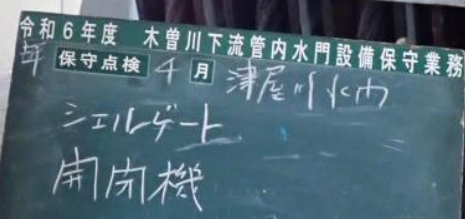 令和6年度 木曽川下流管内水門設備保守業務
年 保守点検 4月 津屋川水門
シェルゲート
開閉機